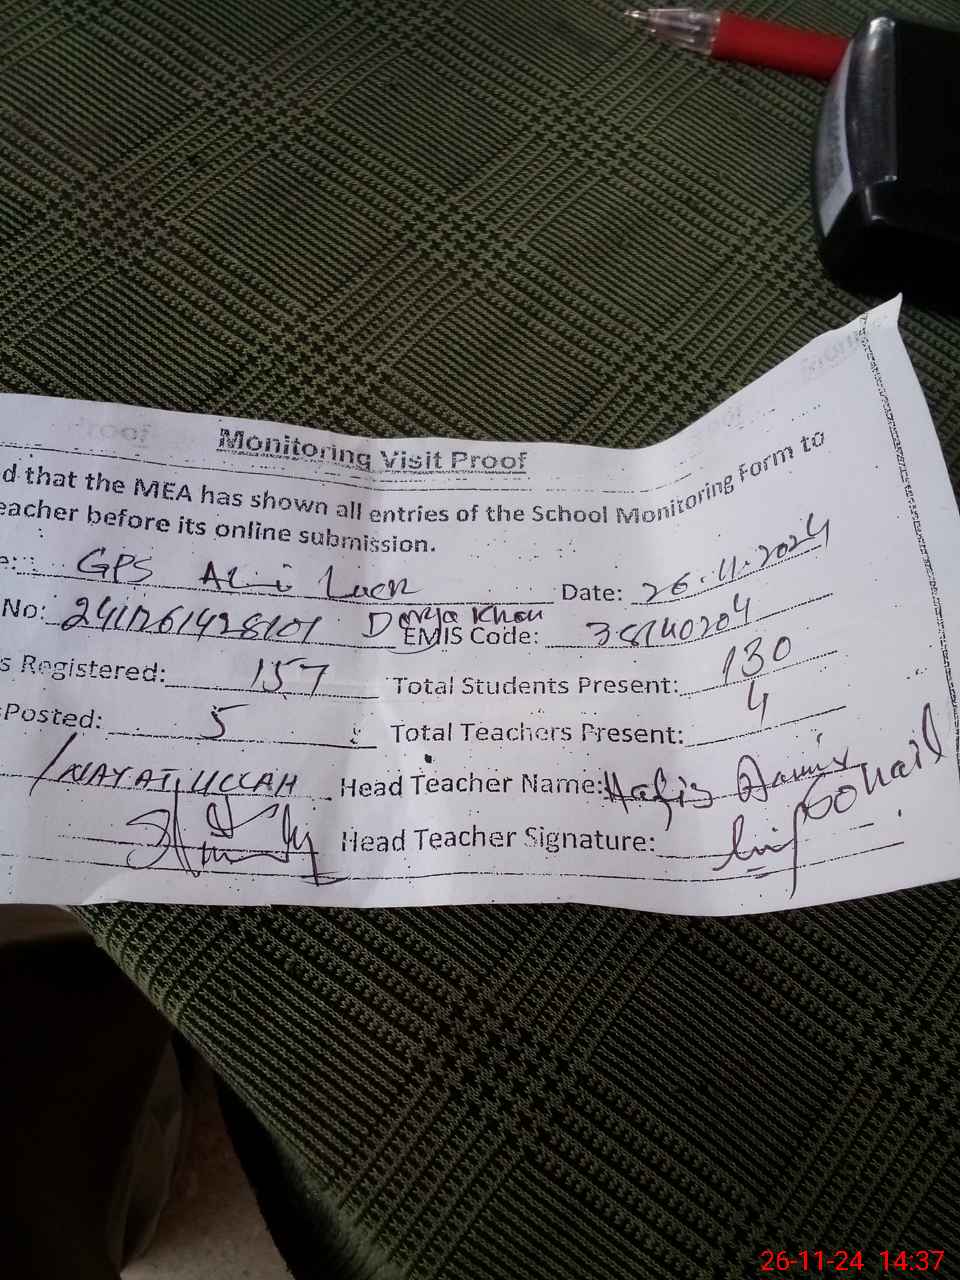 Monitoring Visit Proof
d that the MEA has shown all entries of the School Monitoring Form to
eacher before its online submission.
e: GPS Date: 26.11.2024
No: Darya Khan EMIS Code:
s Registered: 157 Total Students Present: 130
Posted: 5 Total Teachers Present: 4
INAYAT ULLAH Head Teacher Name: Hafiz
Head Teacher Signature:
26-11-24 14:37